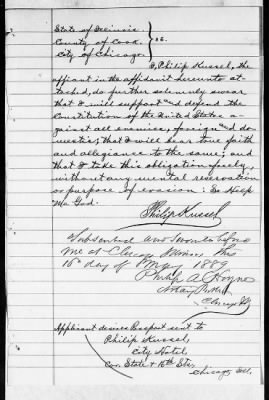 State of Illinois
County of Cook. } ss.
City of Chicago.
I, Philip Kussel, the
affiant in the affidavit hereunto at-
tached, do further solemnly swear
that I will support and defend the
Constitution of the United States a-
gainst all enemies, foreign and do-
mestic; that I will bear true faith
and allegiance to the same; and
that I take this obligation freely,
without any mental reservation
or purpose of evasion: So Help
Me God.
Philip Kussel
Subscribed and Sworn to before
me at Chicago Illinois this
16th day of 1889
Philip A. Hoyne
Notary Public
Chicago Ill
Applicant desires Passport sent to
Philip Kussel,
City Hotel,
Cor. State & 16th Sts,
Chicago, Ill.